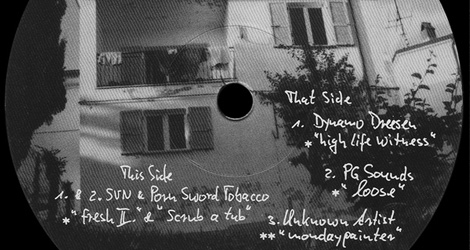 That Side
1. Dynamo Dreesen
*"high life witness"
2. PG Sounds
*"loose"
3. Unknown Artist
**"mondaypainter"
This Side
1. & 2. SVN & Porn Sword Tobacco
*"fresh II." & "Scrub a tub"